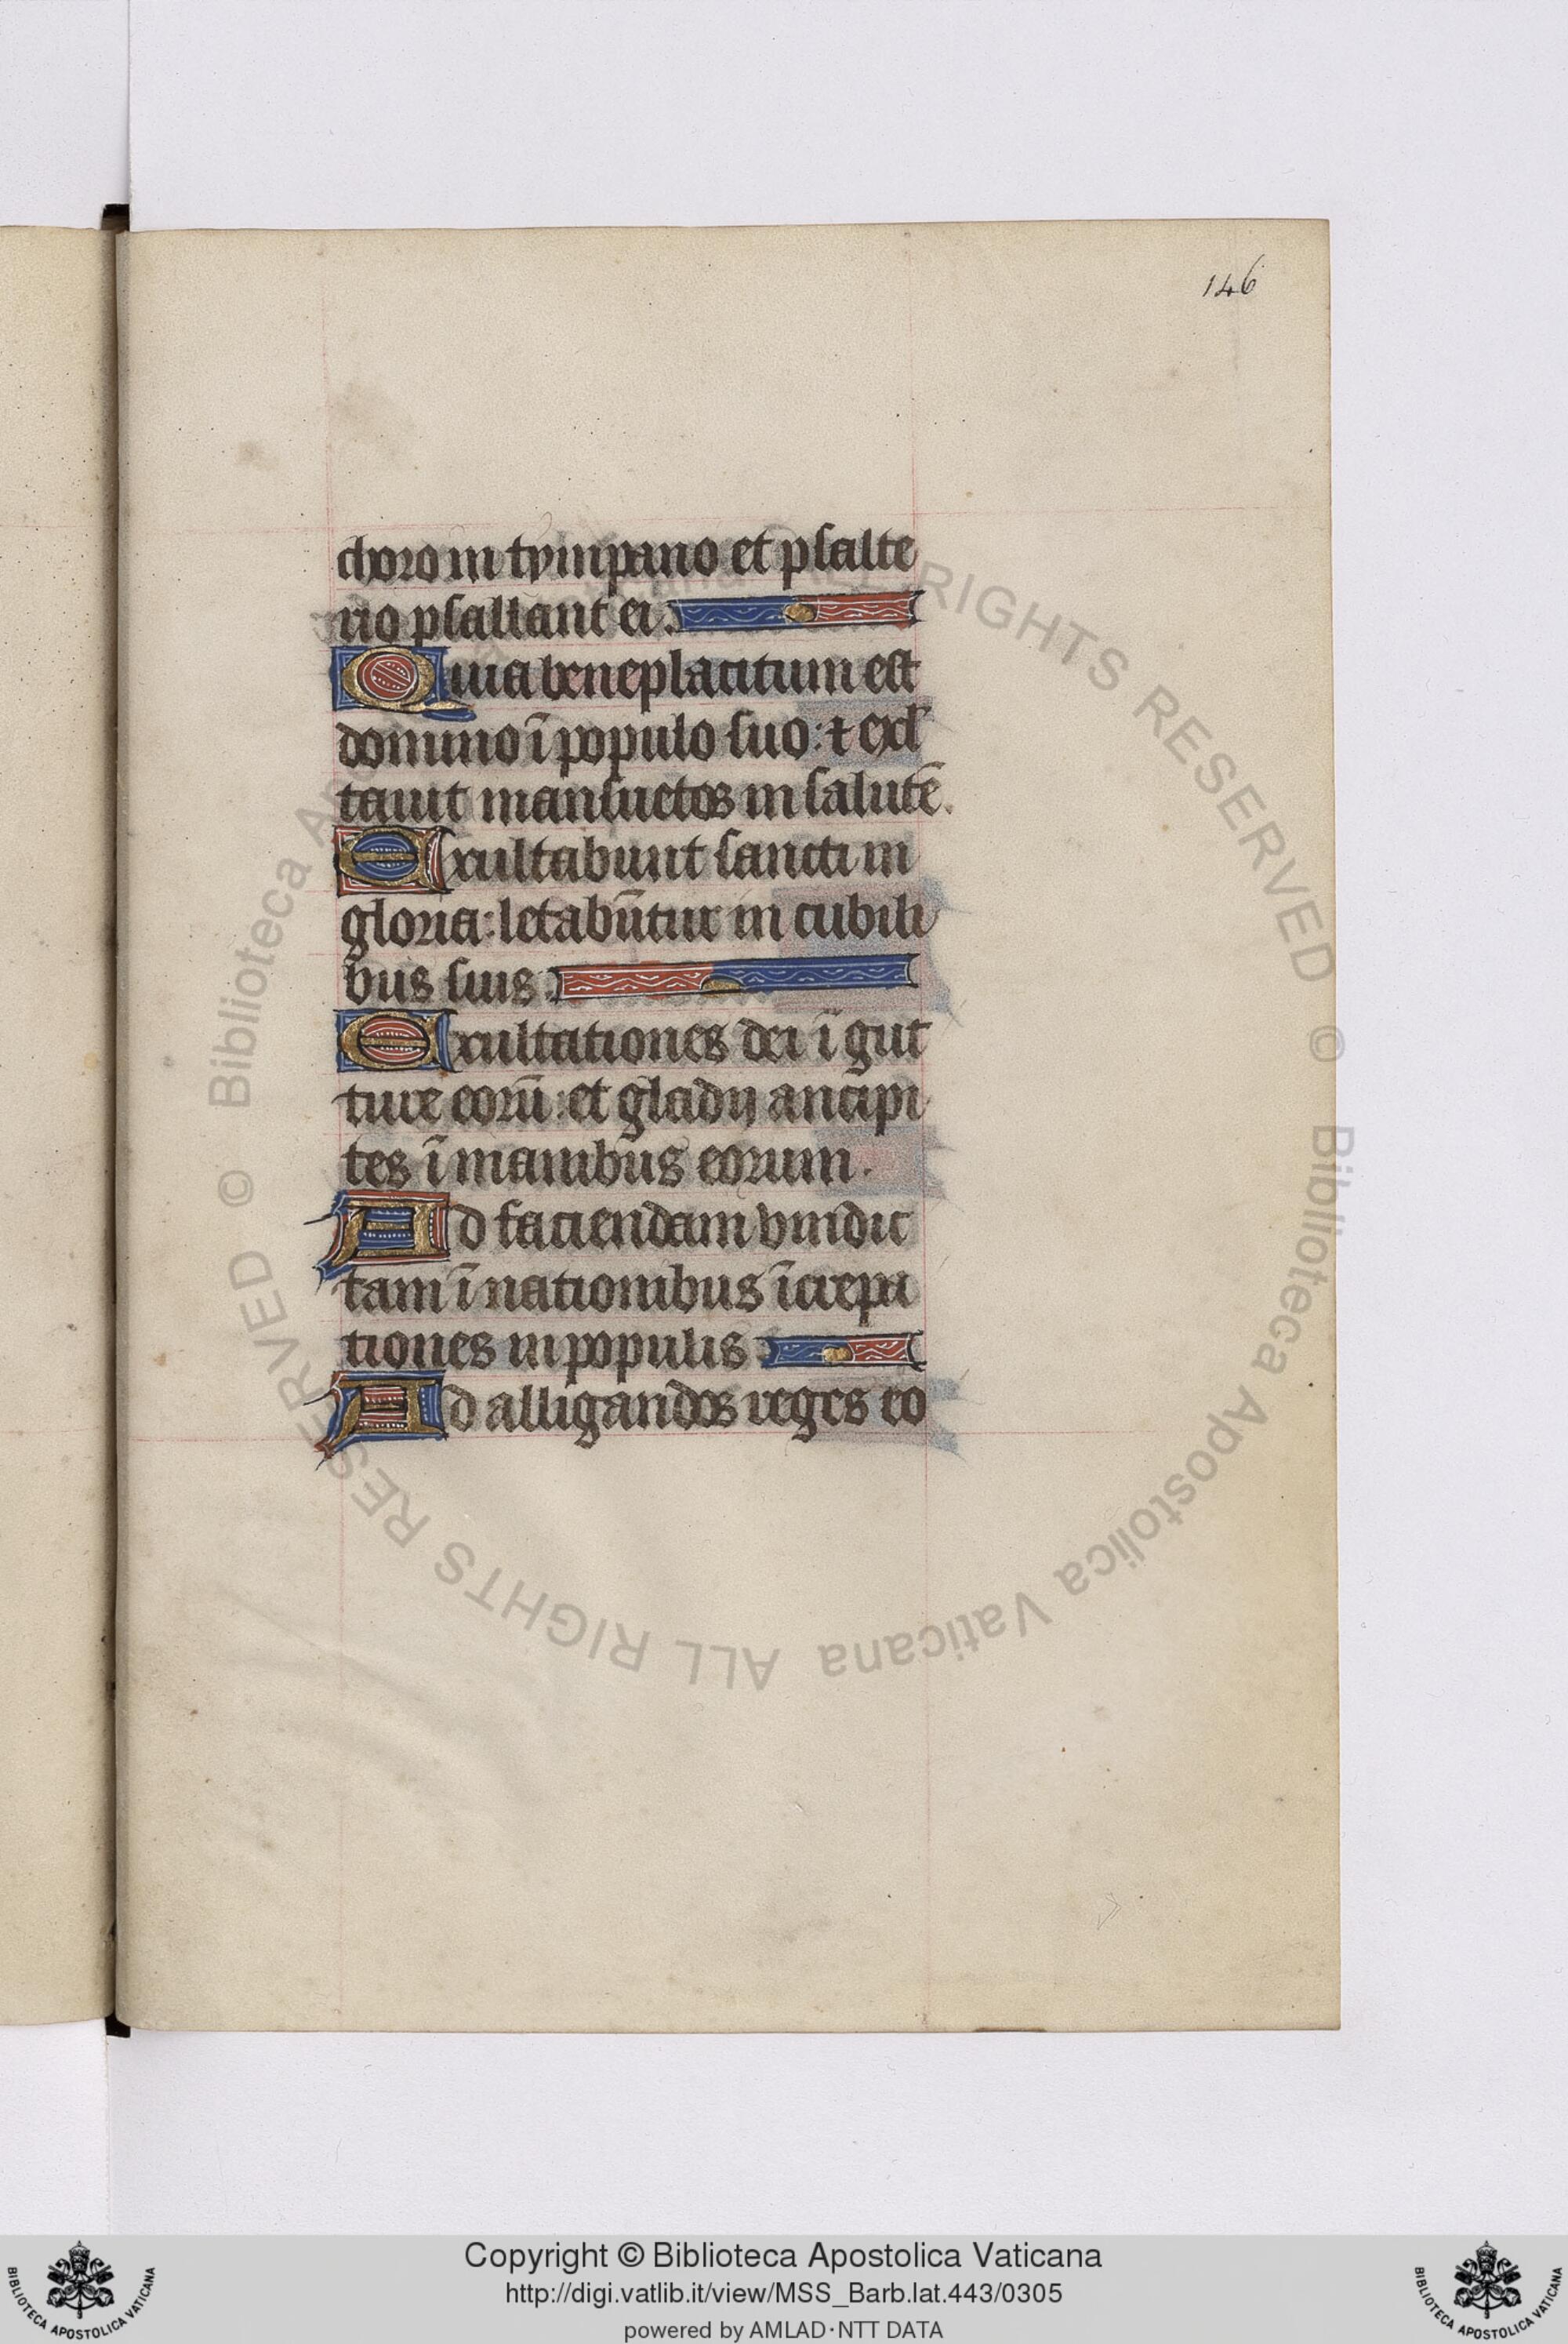 146
choro in tympano et psalte
rio psallant ei.
Quia beneplacitum est
domino ī populo suo: ⁊ exal
tauit mansuetos in salutē.
Exultabunt sancti in
gloria: letabūtur in cubili
bus suis.
Exultationes dei ī gut
ture eorū: et gladij ancipi
tes ī manibus eorum.
Ad faciendam vindic
tam ī nationibus īcrepa
tiones in populis.
Ad alligandos reges eo
© Biblioteca Apostolica Vaticana ALL RIGHTS RESERVED © Biblioteca Apostolica Vaticana ALL RIGHTS RESERVED
Copyright © Biblioteca Apostolica Vaticana
http://digi.vatlib.it/view/MSS_Barb.lat.443/0305
powered by AMLAD·NTT DATA
BIBLIOTECA APOSTOLICA VATICANA
BIBLIOTECA APOSTOLICA VATICANA